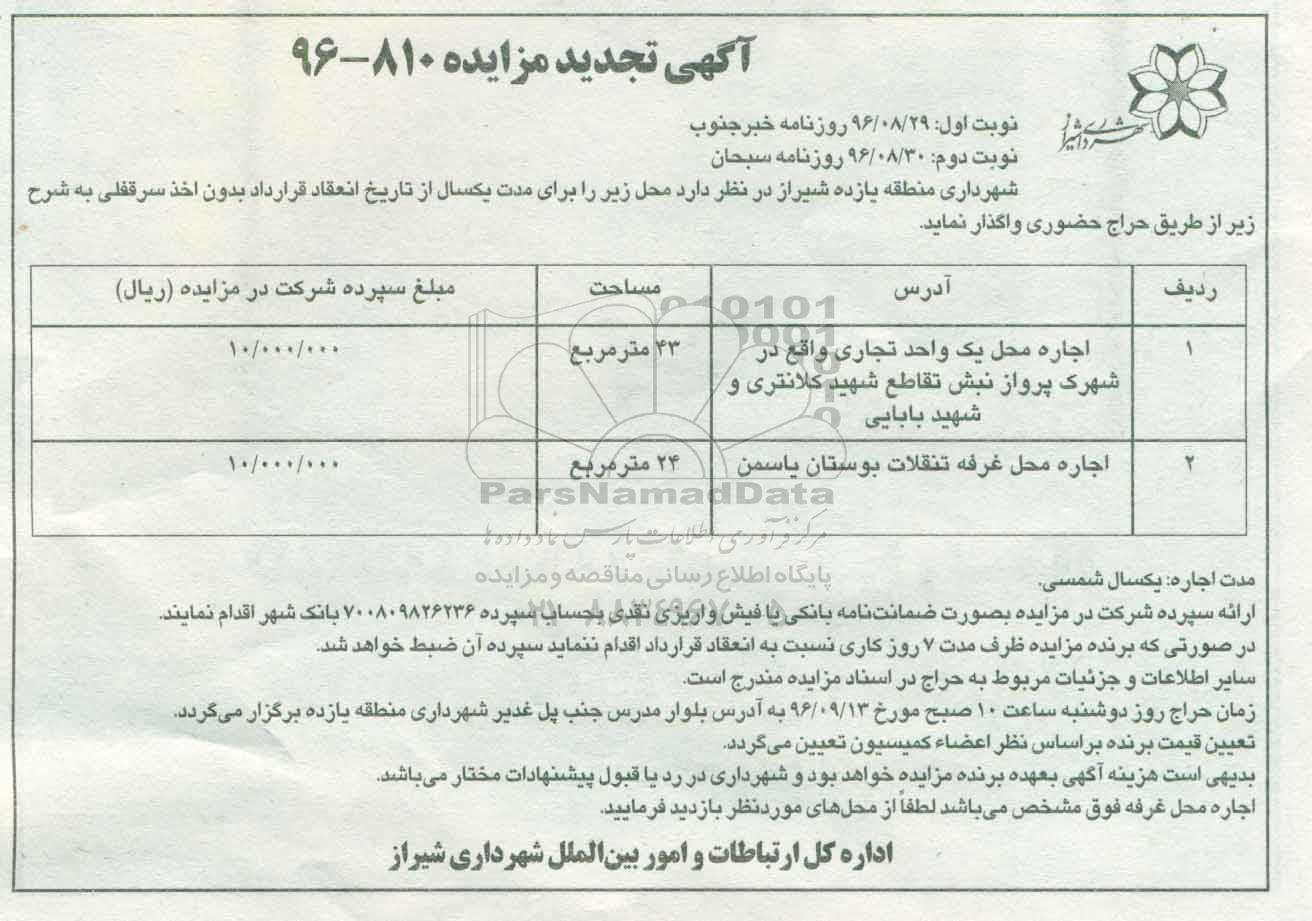 آگهی تجدید مزایده ۸۱۰-۹۶
شهرداری شیراز
نوبت اول: ۹۶/۰۸/۲۹ روزنامه خبرجنوب
نوبت دوم: ۹۶/۰۸/۳۰ روزنامه سبحان
شهرداری منطقه یازده شیراز در نظر دارد محل زیر را برای مدت یکسال از تاریخ انعقاد قرارداد بدون اخذ سرقفلی به شرح
زیر از طریق حراج حضوری واگذار نماید.
ردیف آدرس مساحت مبلغ سپرده شرکت در مزایده (ریال)
۱ اجاره محل یک واحد تجاری واقع در ۴۳ مترمربع ۱۰/۰۰۰/۰۰۰
شهرک پرواز نبش تقاطع شهید کلانتری و
شهید بابایی
۲ اجاره محل غرفه تنقلات بوستان یاسمن ۲۴ مترمربع ۱۰/۰۰۰/۰۰۰
ParsNamadData
مرکز فرآوری اطلاعات پارس نماد داده ها
پایگاه اطلاع رسانی مناقصه و مزایده
مدت اجاره: یکسال شمسی.
ارائه سپرده شرکت در مزایده بصورت ضمانت‌نامه بانکی یا فیش واریزی نقدی بحساب سپرده ۷۰۰۸۰۹۸۲۶۲۳۶ بانک شهر اقدام نمایند.
در صورتی که برنده مزایده ظرف مدت ۷ روز کاری نسبت به انعقاد قرارداد اقدام ننماید سپرده آن ضبط خواهد شد.
سایر اطلاعات و جزئیات مربوط به حراج در اسناد مزایده مندرج است.
زمان حراج روز دوشنبه ساعت ۱۰ صبح مورخ ۹۶/۰۹/۱۳ به آدرس بلوار مدرس جنب پل غدیر شهرداری منطقه یازده برگزار می‌گردد.
تعیین قیمت برنده براساس نظر اعضاء کمیسیون تعیین می‌گردد.
بدیهی است هزینه آگهی بعهده برنده مزایده خواهد بود و شهرداری در رد یا قبول پیشنهادات مختار می‌باشد.
اجاره محل غرفه فوق مشخص می‌باشد لطفاً از محل‌های موردنظر بازدید فرمایید.
اداره کل ارتباطات و امور بین‌الملل شهرداری شیراز